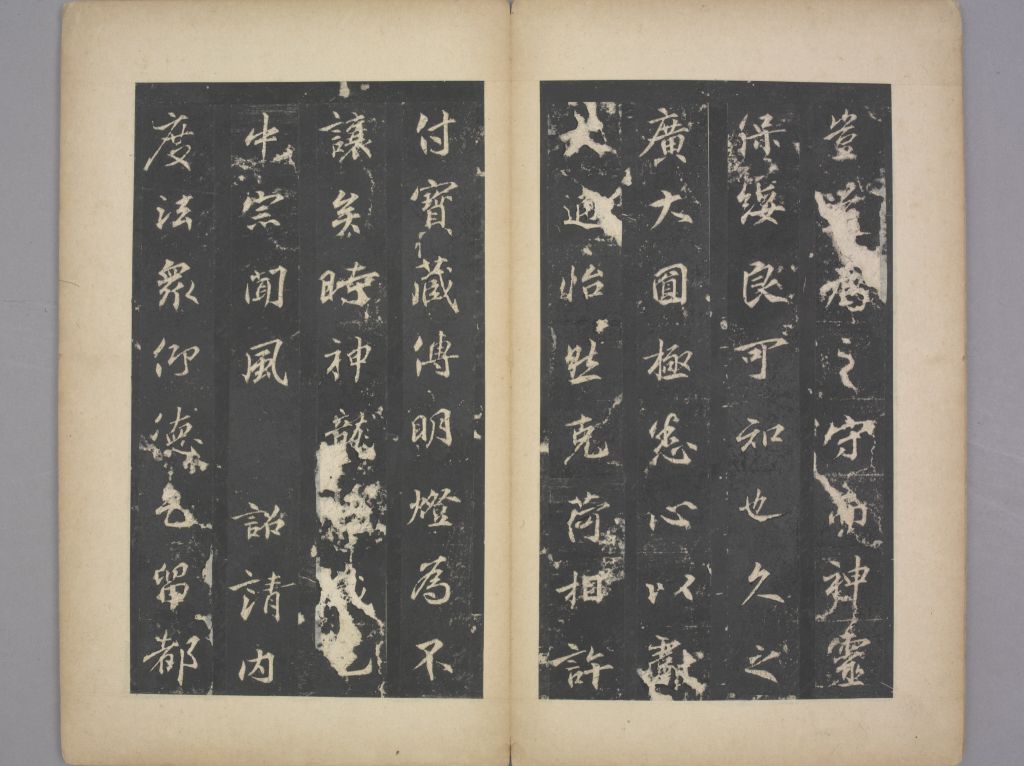 豈為之守而神靈
保綏良可知也久之
廣大圓極悉心以獻
大通怡然克荷相許
付寶藏傳明燈為不
讓矣時神龍
中宗聞風 詔請内
度法衆仰德乞留都